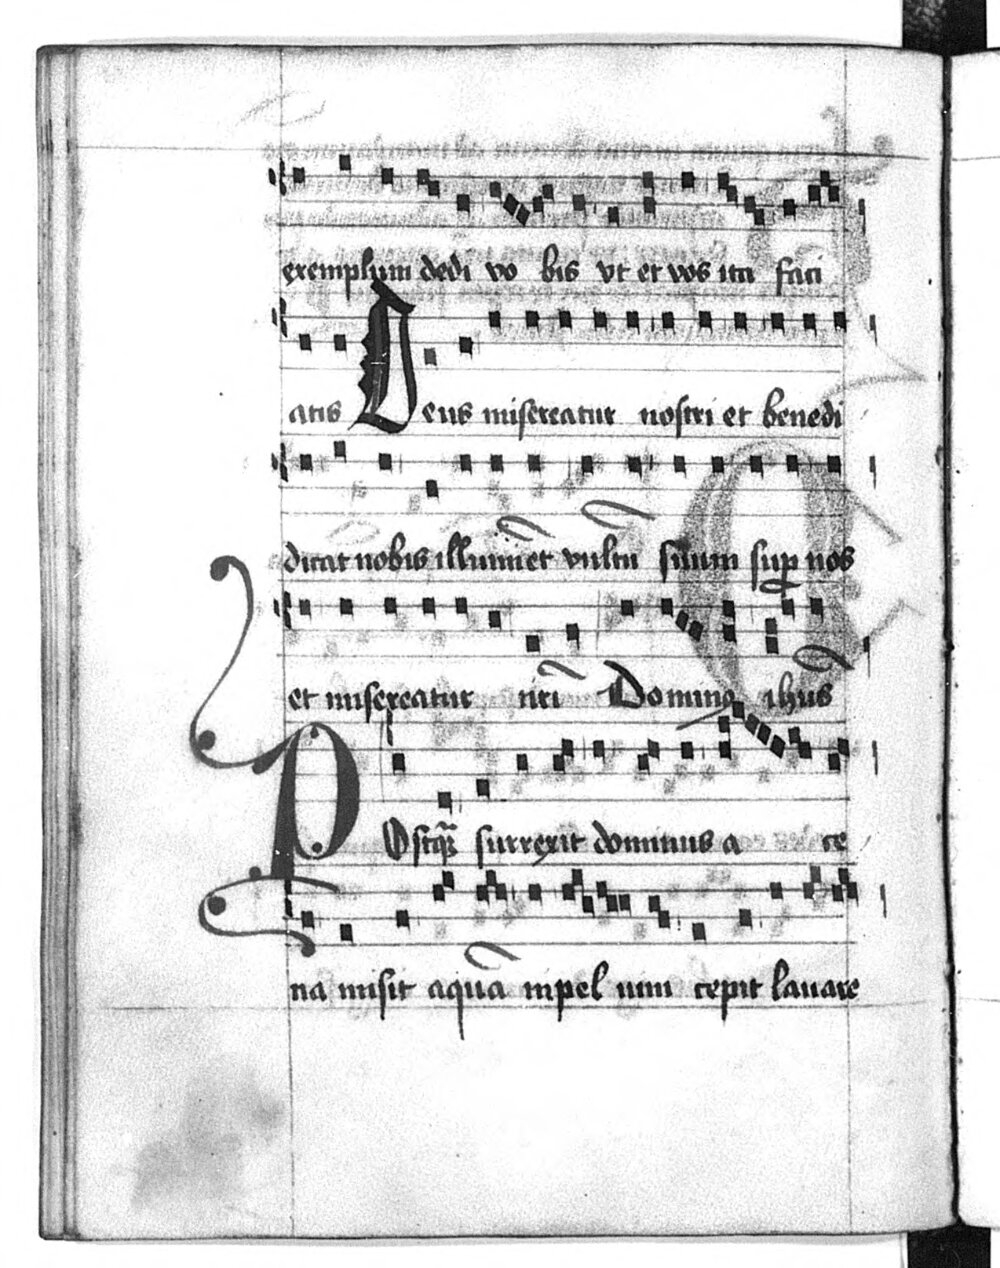 exemplum dedi vo bis vt et vos ita faci
atis Deus misereatur nostri et benedi
dicat nobis illuminet vultū suum suꝑ nos
et misereatur nr̄i Domino ihūs
Postq̄ꝫ surrexit dominus a ce
na misit aquā inpel uim cepit lauare